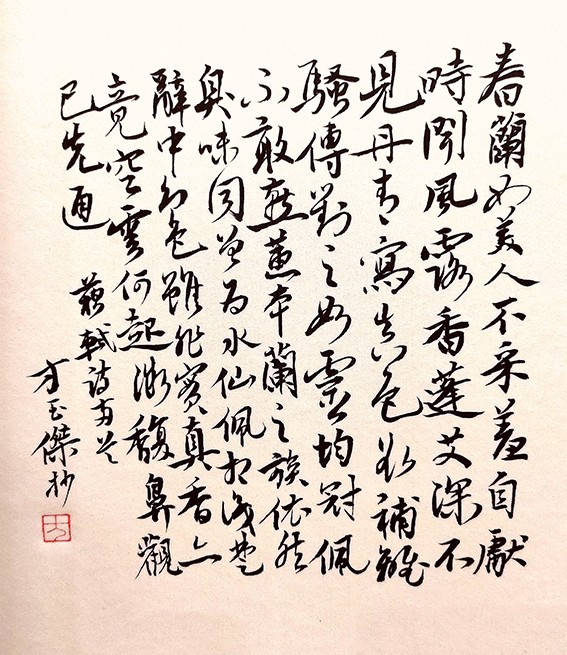 春蘭如美人不采羞自獻
時聞風露香蓬艾深不
見丹青寫真色欲補離
騷傳對之如靈均冠佩
不敢燕蕙本蘭之族依然
臭味同曾為水仙佩相識楚
辭中幻色雖非實真香亦
竟空雲何起微馥鼻觀
已先通
蘇軾詩兩首
方玉傑抄